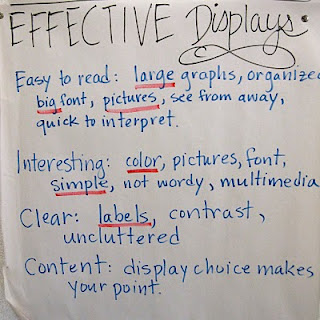 EFFECTIVE Displays
Easy to read: large graphs, organized
big font, pictures, see from away,
quick to interpret.
Interesting: color, pictures, font,
simple, not wordy, multimedia
Clear: labels, contrast,
uncluttered
Content: display choice makes
your point.